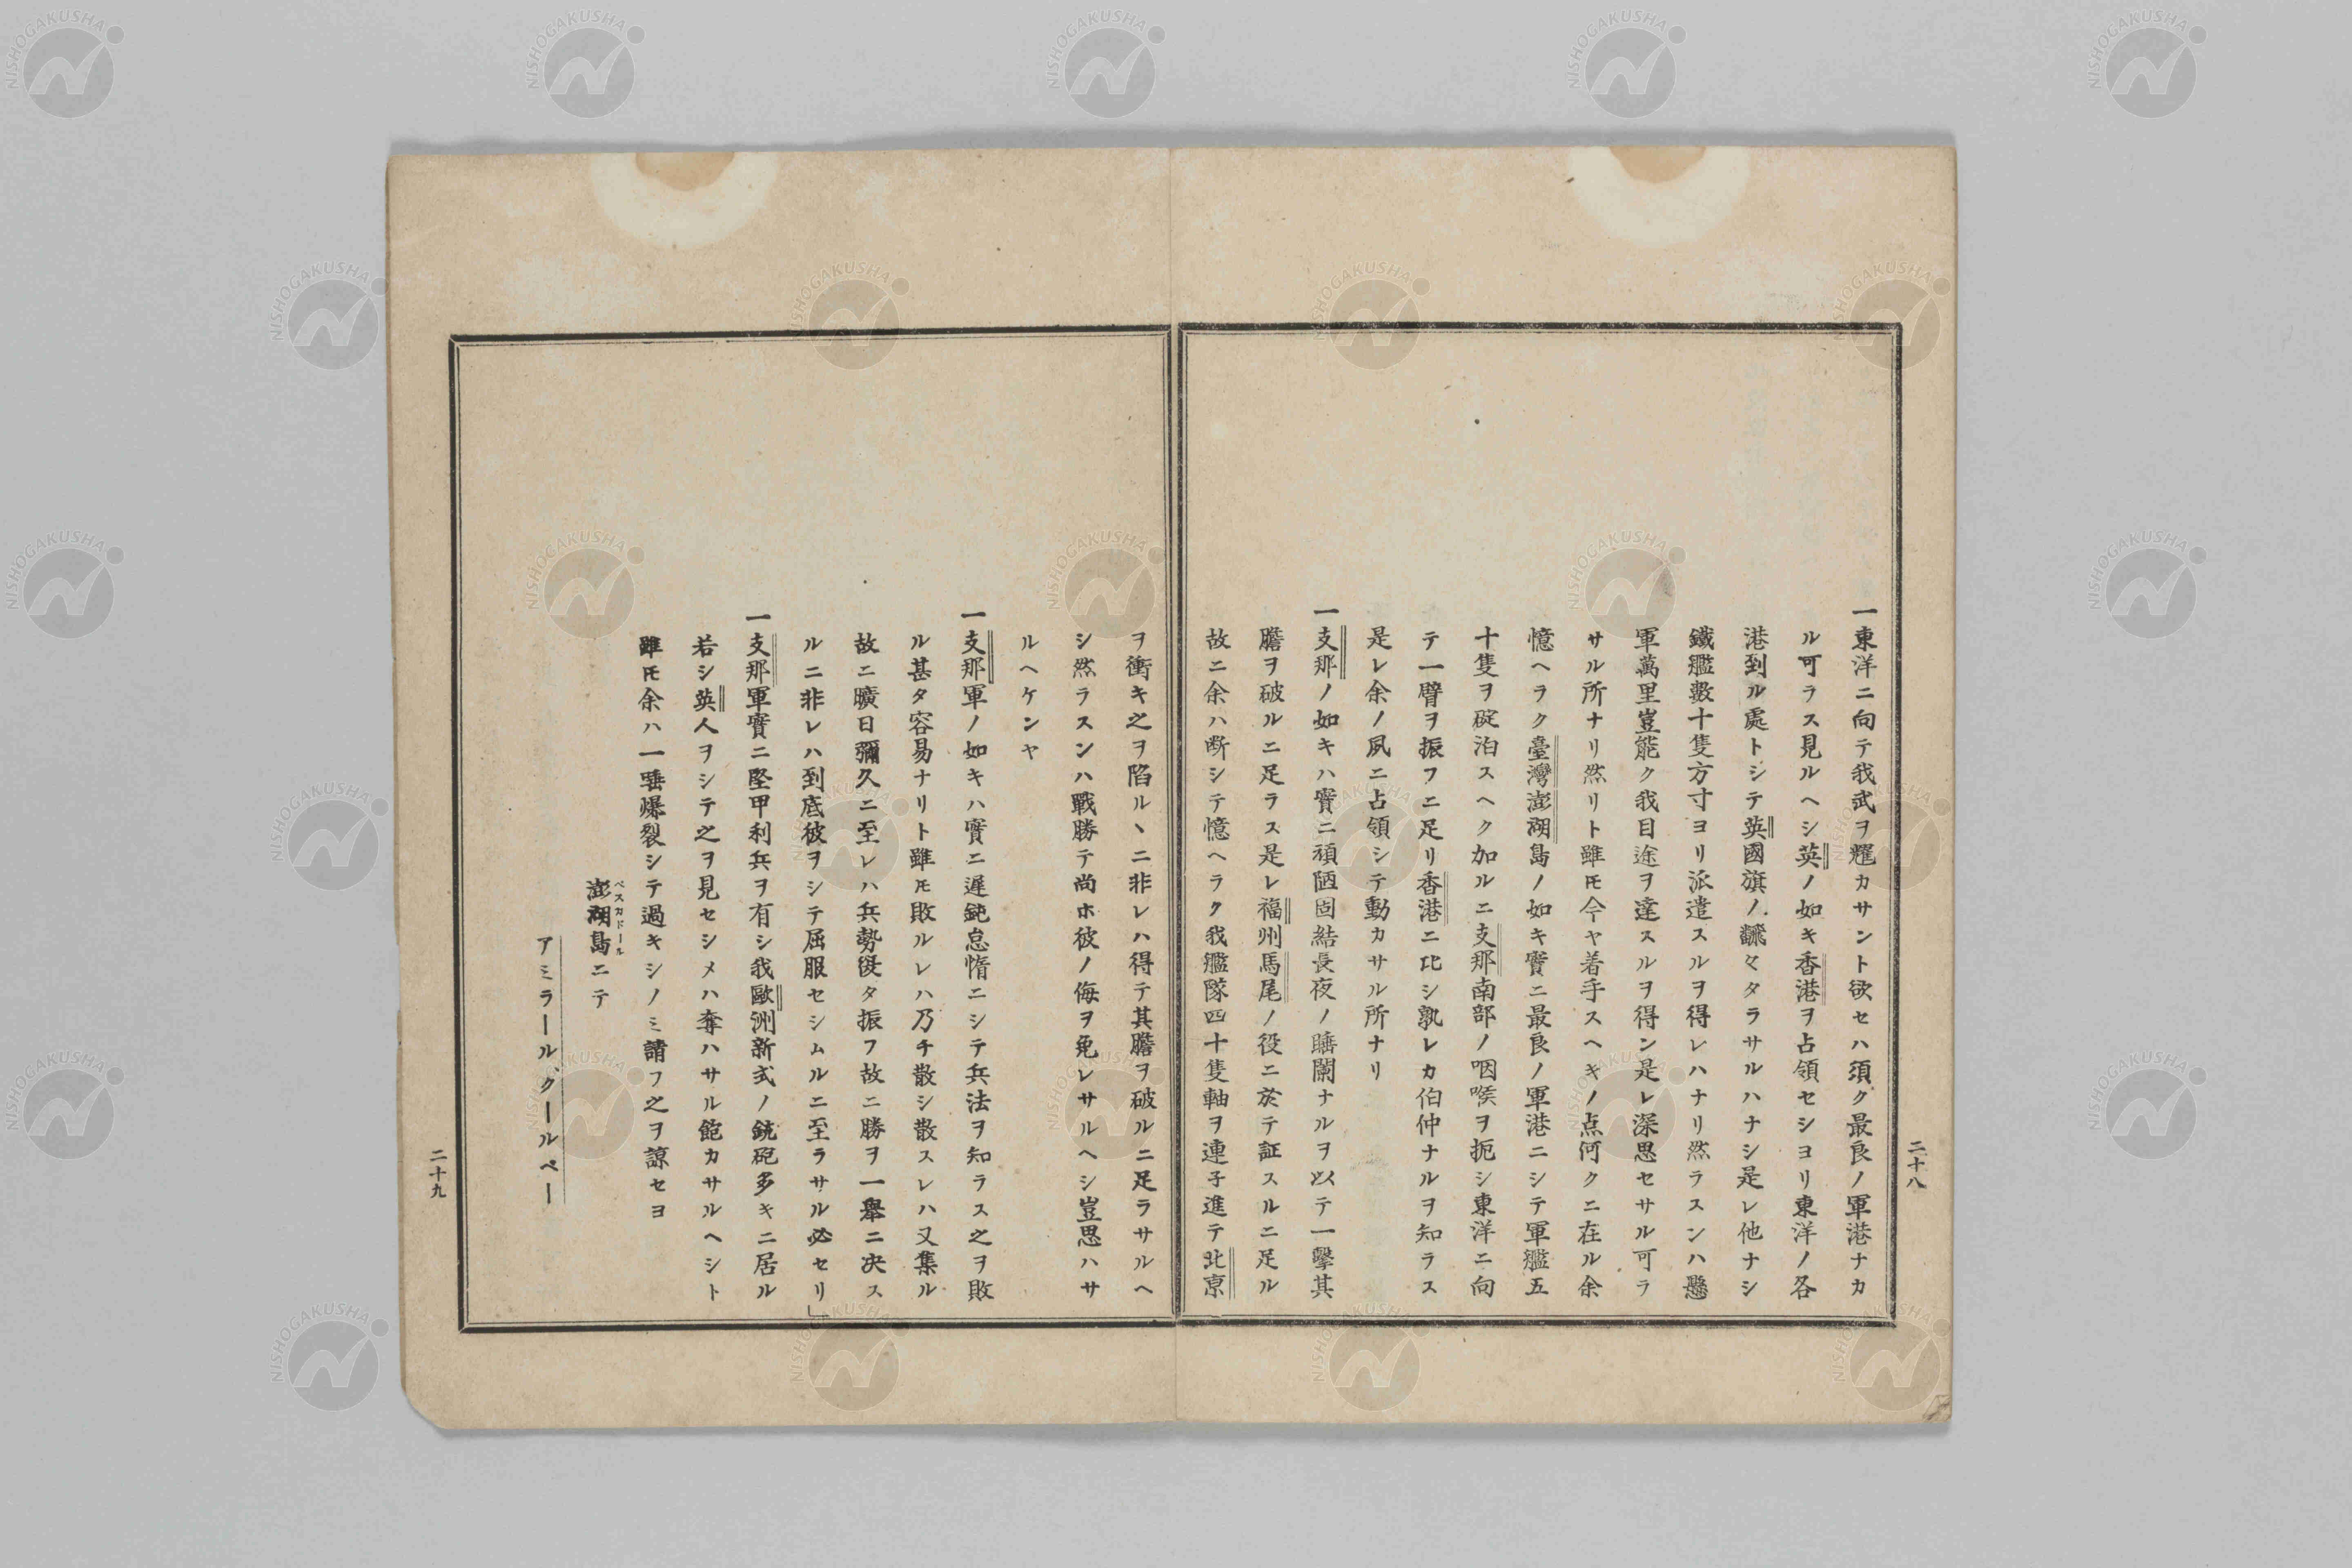 一東洋ニ向テ我武ヲ耀カサント欲セハ須ク最良ノ軍港ナカ
ル可ラス見ルヘシ英ノ如キ香港ヲ占領セシヨリ東洋ノ各
港到ル處トシテ英國旗ノ飜々タラサルハナシ是レ他ナシ
鐵艦數十隻方寸ヨリ派遣スルヲ得レハナリ然ラスンハ懸
軍萬里豈能ク我目途ヲ達スルヲ得ン是レ深思セサル可ラ
サル所ナリ然リト雖モ今ヤ着手スヘキノ点何クニ在ル余
憶ヘラク臺灣澎湖島ノ如キ實ニ最良ノ軍港ニシテ軍艦五
十隻ヲ碇泊スヘク加ルニ支那南部ノ咽喉ヲ扼シ東洋ニ向
テ一臂ヲ振フニ足リ香港ニ比シ孰レカ伯仲ナルヲ知ラス
是レ余ノ夙ニ占領シテ動カサル所ナリ
一支那ノ如キハ實ニ頑陋固結長夜ノ瞎闇ナルヲ以テ一擊其
膽ヲ破ルニ足ラス是レ福州馬尾ノ役ニ於テ証スルニ足ル
故ニ余ハ断シテ憶ヘラク我艦隊四十隻軸ヲ連子進テ北京
二十八
ヲ衝キ之ヲ陷ルヽニ非レハ得テ其膽ヲ破ルニ足ラサルヘ
シ然ラスンハ戰勝テ尚ホ彼ノ侮ヲ免レサルヘシ豈思ハサ
ルヘケンヤ
一支那軍ノ如キハ實ニ遲鈍怠惰ニシテ兵法ヲ知ラス之ヲ敗
ル甚タ容易ナリト雖モ敗ルレハ乃チ散シ散スレハ又集ル
故ニ曠日彌久ニ至レハ兵勢復タ振フ故ニ勝ヲ一擧ニ决ス
ルニ非レハ到底彼ヲシテ屈服セシムルニ至ラサル必セリ
一支那軍實ニ堅甲利兵ヲ有シ我歐洲新式ノ銃砲多キニ居ル
若シ英人ヲシテ之ヲ見セシメハ奪ハサル飽カサルヘシト
雖モ余ハ一唾爆裂シテ過キシノミ請フ之ヲ諒セヨ
澎湖島ニテ
ペスカドール
アミラールクールベー
二十九
NISHOGAKUSHA